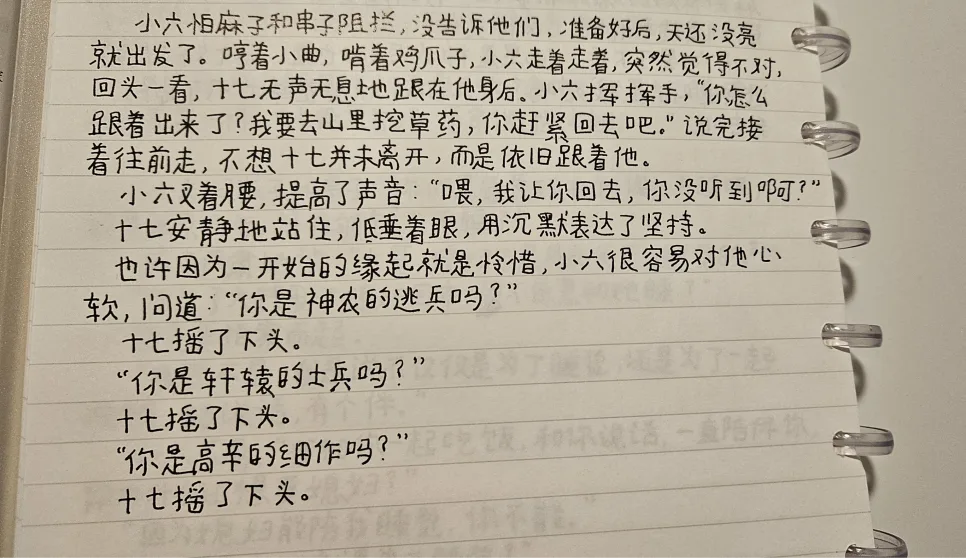 小六怕麻子和串子阻拦，没告诉他们，准备好后，天还没亮
就出发了。哼着小曲，啃着鸡爪子，小六走着走着，突然觉得不对，
回头一看，十七无声无息地跟在他身后。小六挥挥手，“你怎么
跟着出来了？我要去山里挖草药，你赶紧回去吧。”说完接
着往前走，不想十七并未离开，而是依旧跟着他。
小六叉着腰，提高了声音：“喂，我让你回去，你没听到啊？”
十七安静地站住，低垂着眼，用沉默表达了坚持。
也许因为一开始的缘起就是怜惜，小六很容易对他心
软，问道：“你是神农的逃兵吗？”
十七摇了下头。
“你是轩辕的士兵吗？”
十七摇了下头。
“你是高辛的细作吗？”
十七摇了下头。